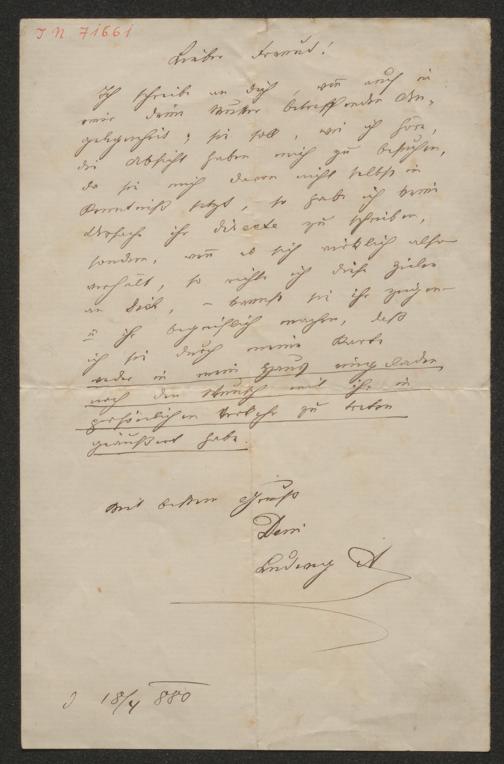 I N 71661
Lieber Freund!
Ich schreibe an Dich, wenn auch in
einer Deine Mutter betreffenden An-
gelegenheit; sie soll, wie ich höre,
die Absicht haben mich zu besuchen,
da sie mich davon nicht selbst in
Kenntniß setzt, so habe ich keine
Ursache ihr directe zu schreiben,
sondern, wenn es sich wirklich also
verhält, so richte ich diese Zeilen
an Dich, sie ihr zeigen
u ihr begreiflich machen, daß
ich sie durch meine Karte
weder in mein Haus eingeladen,
noch den Wunsch mit ihr in
persönlichen Verkehr zu treten
geäußert habe.
Mit bestem Gruß
Dein
Ludwig A
18/4 880